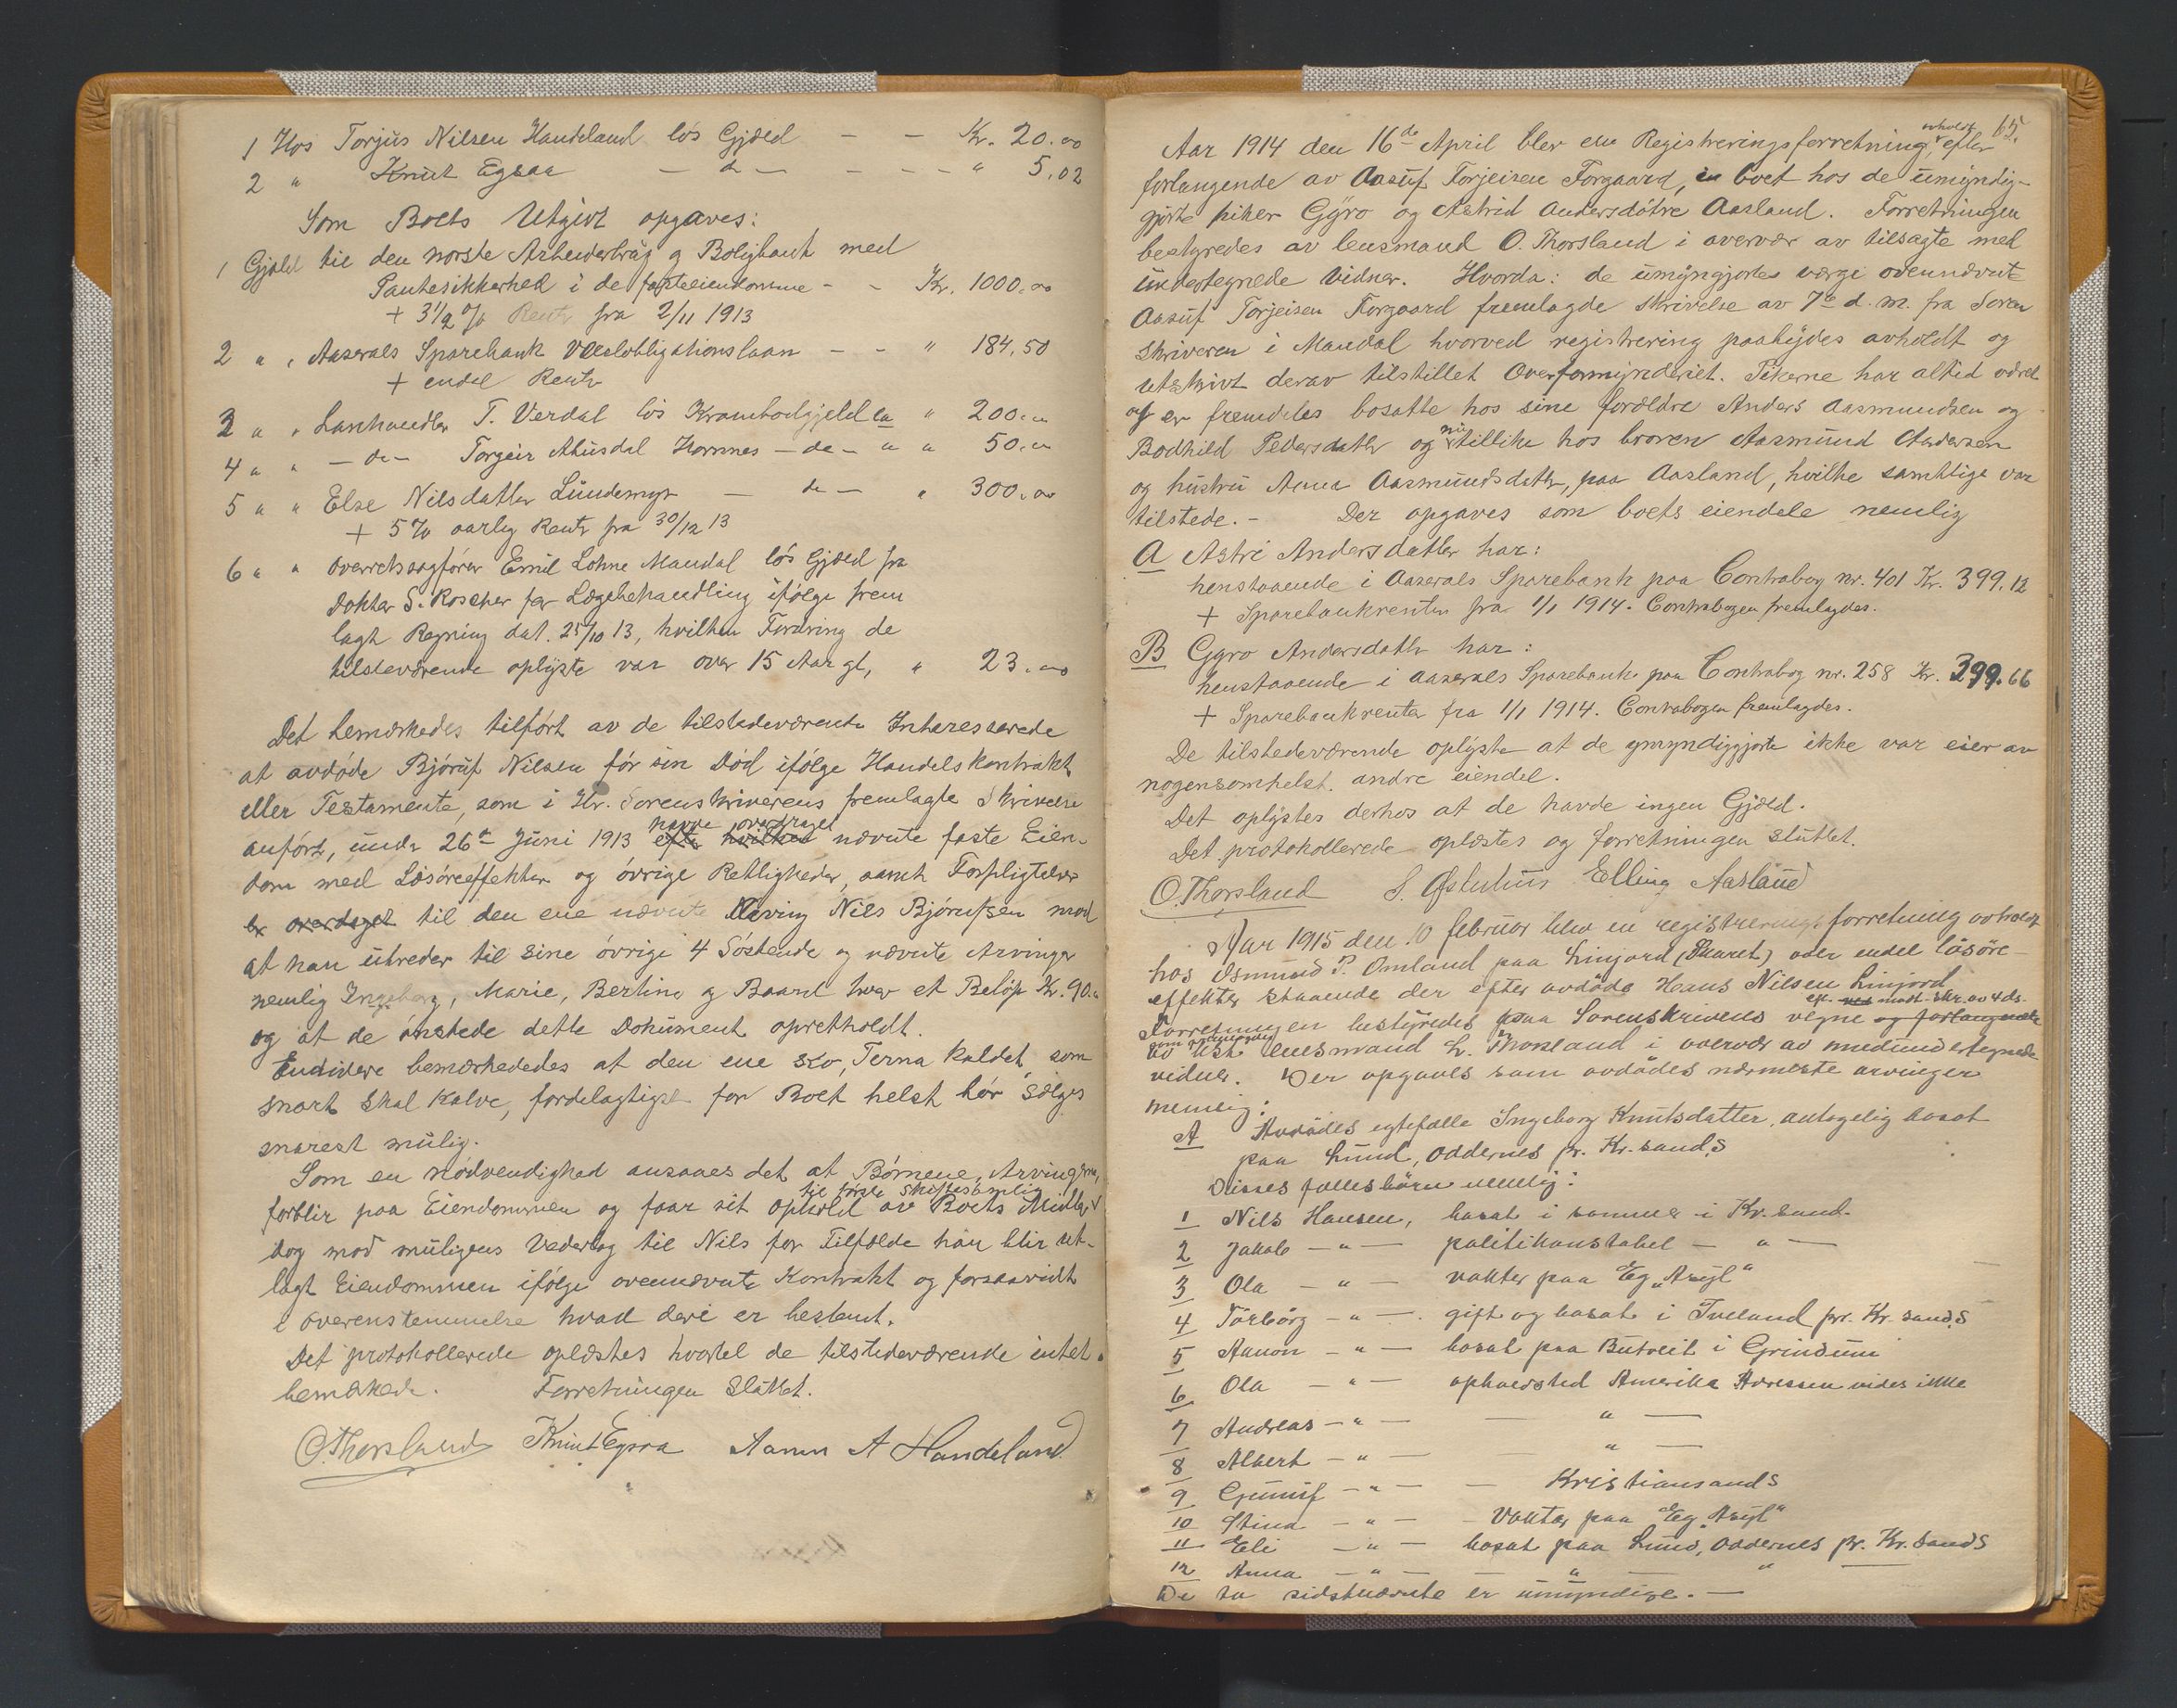 1 Hos Torjus Nilsen Handeland lös Gjæld — — Kr. 20.00
2 " Knut Egsaa — do — — — — " 5,02
Som Boets Utgivt opgaves:
1 Gjæld til den norske Arbeiderbrug og Boligbank med
Pantesikkerhed i de faste eiendomme - - Kr. 1000.00
+ 3½ % Rente fra 2/11 1913
2 " " Aaserals Sparebank Vexelobligationslaan - - " 184,50
+ endel Rente
3 " " Lanhandler T. Verdal lös Krambodgjeld ca " 200.00
4 " " - do - Torgeir Ahusdal Hornnes - do - " " 50.00
5 " " Else Nilsdatter Lundemyr — do — " 300.00
+ 5 % aarlig Rente fra 30/12 13
6 " " Overretssagförer Emil Lohne Mandal lös Gjæld fra
Doktor S. Roscher for Lægebehandling ifölge frem
lagt Regning dat. 25/10 13, hvilken Fordring de
tilstedværende oplyste var over 15 Aar gl, " 23.00
Det bemærkedes tilfört av de tilstedeværende Interesserede
at avdöde Björuf Nilsen för sin Död ifölge Handelskontrakt
eller Testamente, som i Hr. Sorenskriverens fremlagte Skrivelse
anfört, under 26de Juni 1913 havde overdraget nævnte faste Eien-
dom med Lösöreeffekter og övrige Retligheder, samt Forpligtelser
er overdraget til den ene nævnte Arving Nils Björufsen mod
at han utreder til sine övrige 4 Söskende og nævnte Arvinger
nemlig Ingeborg, Marie, Bertine og Baard hver et Belöp Kr. 90.00
og at de önskede dette Dokument opretholdt.
Endvidere bemærkededes at den ene Ko, Terna kaldet, som
snart skal kalve, fordelagtigst for Boet helst bör sælges
snarest mulig.
Som en nödvendighed ansaaes det at Börnene, Arvingerne,
forblir paa Eiendommen og faar sit ophold av Boets Midler til förste Skiftesamling
dog mod muligens Vederlag til Nils for Tilfælde han blir ut-
lagt Eiendommen ifölge ovennævnte Kontrakt og forsaavidt
i overenstemmelse hvad deri er bestemt.
Det protokollerede oplæstes hvortil de tilstedeværende intet
bemærkede. Forretningen Sluttet.
O. Thorsland Knut Egsaa Aanen A Handeland
65.
Aar 1914 den 16de April blev en Registreringsforretning avholdt, efter
forlangende av Aasuf Torjeisen Forgaard, in boet hos de umyndig-
gjorte piker Gyro og Astrid Andersdötre Aasland. Forretningen
bestyredes av lensmand O. Thorsland i overvær av tilsagte med
undertegnede Vidner. Hvorda: de umyngjortes værge ovennævnte
Aasuf Torjeisen Forgaard fremlagde Skrivelse av 7de d. m. fra Soren
skriveren i Mandal hvorved registrering paabydes avholdt og
utskrivt derav tilstillet Overformynderiet. Pikerne har altid været
og er fremdeles bosatte hos sine forældre Anders Aasmundsen og
Bodhild Pedersdatter og nu tillike hos broren Aasmund Andersen
og hustru Anna Aasmundsdatter, paa Aasland, hvilke samtlige var
tilstede. - Der opgaves som boets eiendele nemlig
A Astri Andersdatter har:
henstaaende i Aaserals Sparebank paa Contrabog nr. 401 Kr. 399.12
+ Sparebankrenter fra 1/1 1914. Contrabogen fremlagdes.
B Gyro Andersdatter har:
henstaaende i Aaserals Sparebank paa Contrabog nr. 258 Kr. 399.66
+ Sparebankrenter fra 1/1 1914. Contrabogen fremlagdes.
De tilstedeværende oplyste at de ymyndiggjorte ikke var eier av
nogensomhelst. andre eiendel.
Det oplystes derhos at de havde ingen Gjæld.
Det protokollerede oplæstes og forretningen sluttet.
O. Thorsland S. Østuhus Elling Aasland
Aar 1915 den 10 februar blev en registreringsforretning avholdt
hos Osmund P. Omland paa Linjord (Skaaret) over endel lösöre-
effekter staaende der efter avdöde Hans Nilsen Linjord
Forretningen bestyredes paa Sorenskriverens vegne eft. modt. skr. av 4 ds.
av lensmand O. Thorsland i overvær av medundertegnede
vidner. Der opgaves som avdödes nærmeste arvinger
nemlig:
A Avdödes egtefælle Ingeborg Knutsdatter, antagelig bosat
paa Lund, Oddernes pr. Kr.sand,S
Disses fællesbörn nemlig:
1 Nils Hansen, bosat i samme i Kr.sand.
2 Jakob — " — politikonstabel — " —
3 Ola — " — vakter paa Eg "Asyl"
4 Torborg — " — gift og bosat i Iveland pr. Kr. sand,S
5 Aanon — " — bosat paa Butveit i Grindum
6 Ola — " — opholdsted Amerika Adressen vides ikke
7 Andreas — " — — " —
8 Albert — " — — " —
9 Gunuf — " — — Kristiansand S
10 Stina — " — - Vakter paa "Eg Asyl"
11 Eli — " — bosat paa Lund, Oddernes pr. Kr. sand S
12 Anna — " — — " — — " —
De to sidstnævnte er umyndige. —